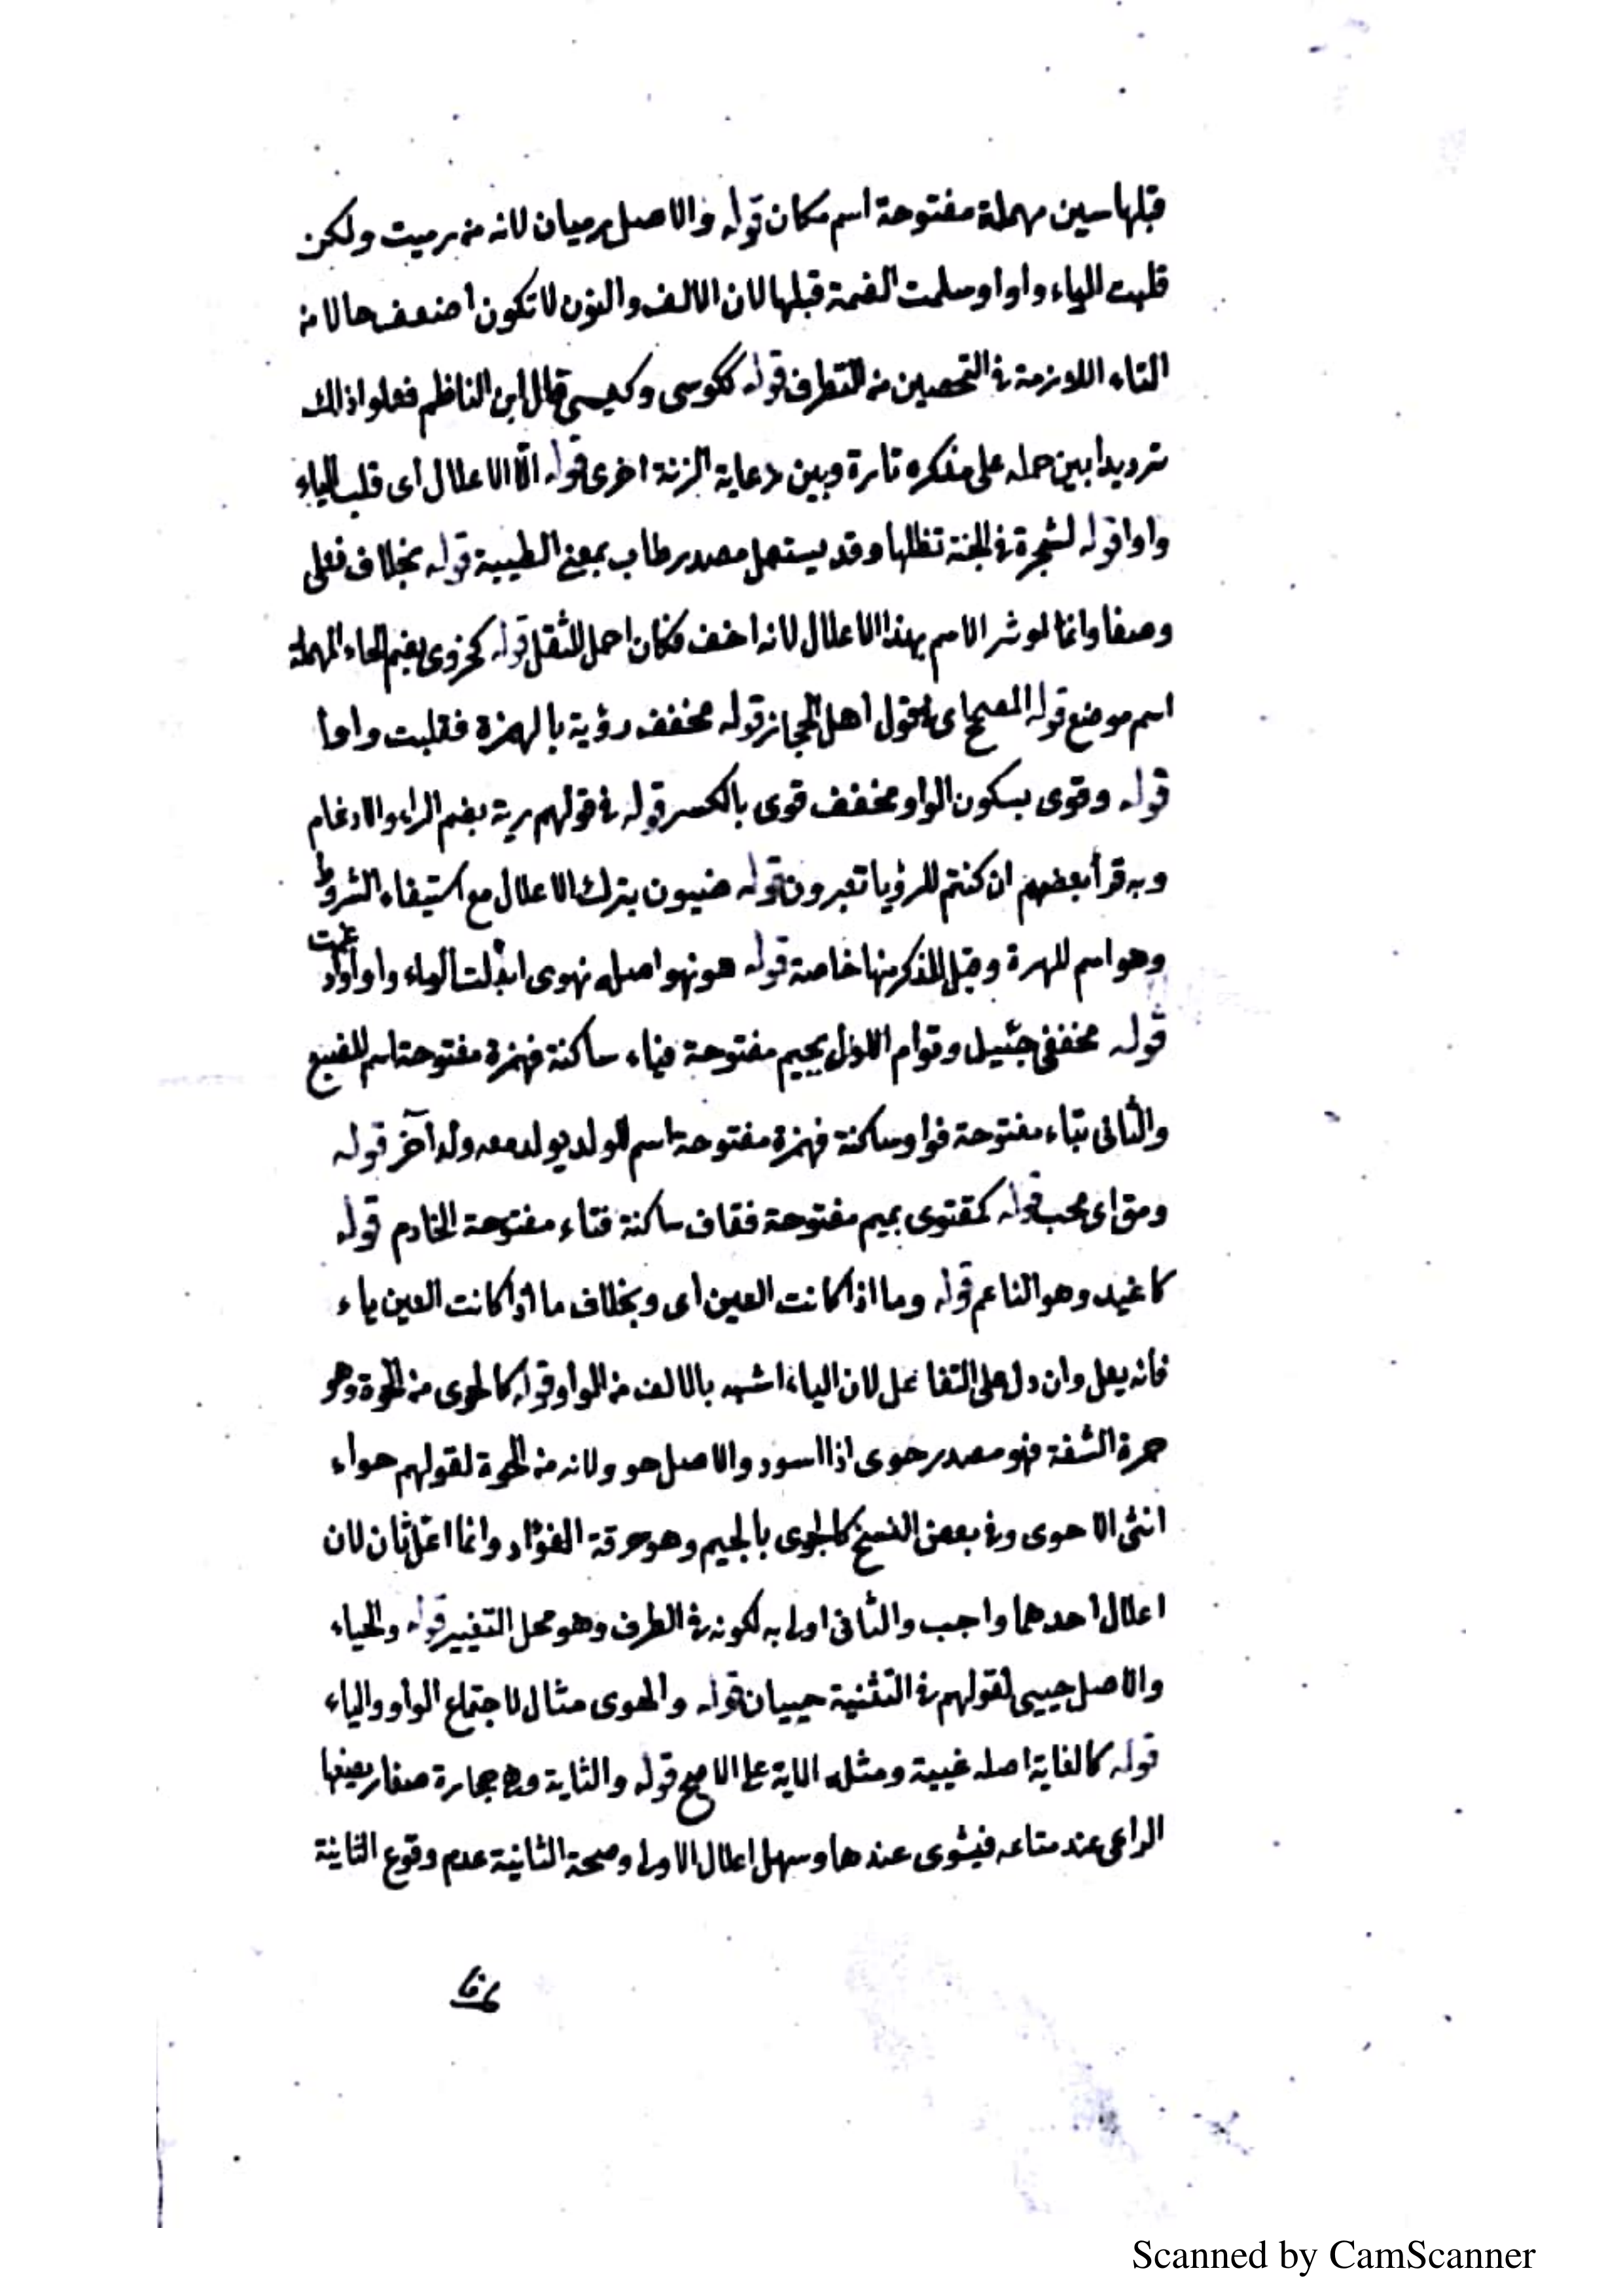 قبلها سين مهملة مفتوحة اسم مكان قوله والاصل رميان لانه من رميت ولكن
قلبت الياء واوا وسلمت الضمة قبلها لان الالف والنون لا تكون اضعف حالا من
التاء اللازمة في التحصين من التطرف قوله ككوسى وكيسى قال ابن الناظم فعلوا ذالك
ترديدا بين حمله على مذكره تارة وبين رعاية الزنة اخرى قوله الا الاعلال اى قلب الياء
واوا قوله لشجرة في الجنة تظلها وقد يستعمل مصدر طاب بمعنى الطيبية قوله بخلاف فعلى
وصفا وانما لموثر الاسم بهذا الاعلال لانه اخف فكان احمل للثقل قوله كحزوى بضم الحاء المهملة
اسم موضع قوله اى اهل الحجاز قوله مخفف رؤية بالهمزة فقلبت واوا
قوله وقوى بسكون الواو مخفف قوى بالكسر قوله في قولهم رية بضم الراء والادغام
وبه قرأ بعضهم ان كنتم للرؤيا تعبرون قوله ضيون بترك الاعلال مع استيفاء الشروط
وهو اسم للهرة وقيل للذكر منها خاصة قوله هو نهو اصله نهوى ابدلت الياء واوا وادغمت
قوله مخففى جيئل وتوام الاول بجيم مفتوحة فياء ساكنة فهمزة مفتوحة اسم للضبع
والثانى بتاء مفتوحة فواو ساكنة فهمزة مفتوحة اسم للولد يولد معه ولد آخر قوله
ومق اى محب قوله كمقتوى بميم مفتوحة فقاف ساكنة فتاء مفتوحة الخادم قوله
كاغيد وهو الناعم قوله وما اذا كانت العين اى وبخلاف ما اذا كانت العين ياء
فانه يعل وان دل على التفاعل لان الياء اشبه بالالف من الواو قوله كالحوى من الحوة وهو
حمرة الشفة فهو مصدر حوى اذا اسود والاصل حوو لانه من الحوة لقولهم حواء
انثى الاحوى وفي بعض النسخ كالجوى بالجيم وهو حرقة الفؤاد وانما اعل ثان لان
اعلال احدهما واجب والثانى اولى به لكونه في الطرف وهو محل التغيير قوله والحياء
والاصل حييى لقولهم في التثنية حييان قوله والهوى مثال لاجتماع الواو والياء
قوله كالغاية اصله غيية ومثله الاية على الاصح قوله والثاية وهى حجارة صغار يضعها
الراعى عند متاعه فيثوى عندها وسهل اعلال الاولى وصحة الثانية عدم وقوع الثانية